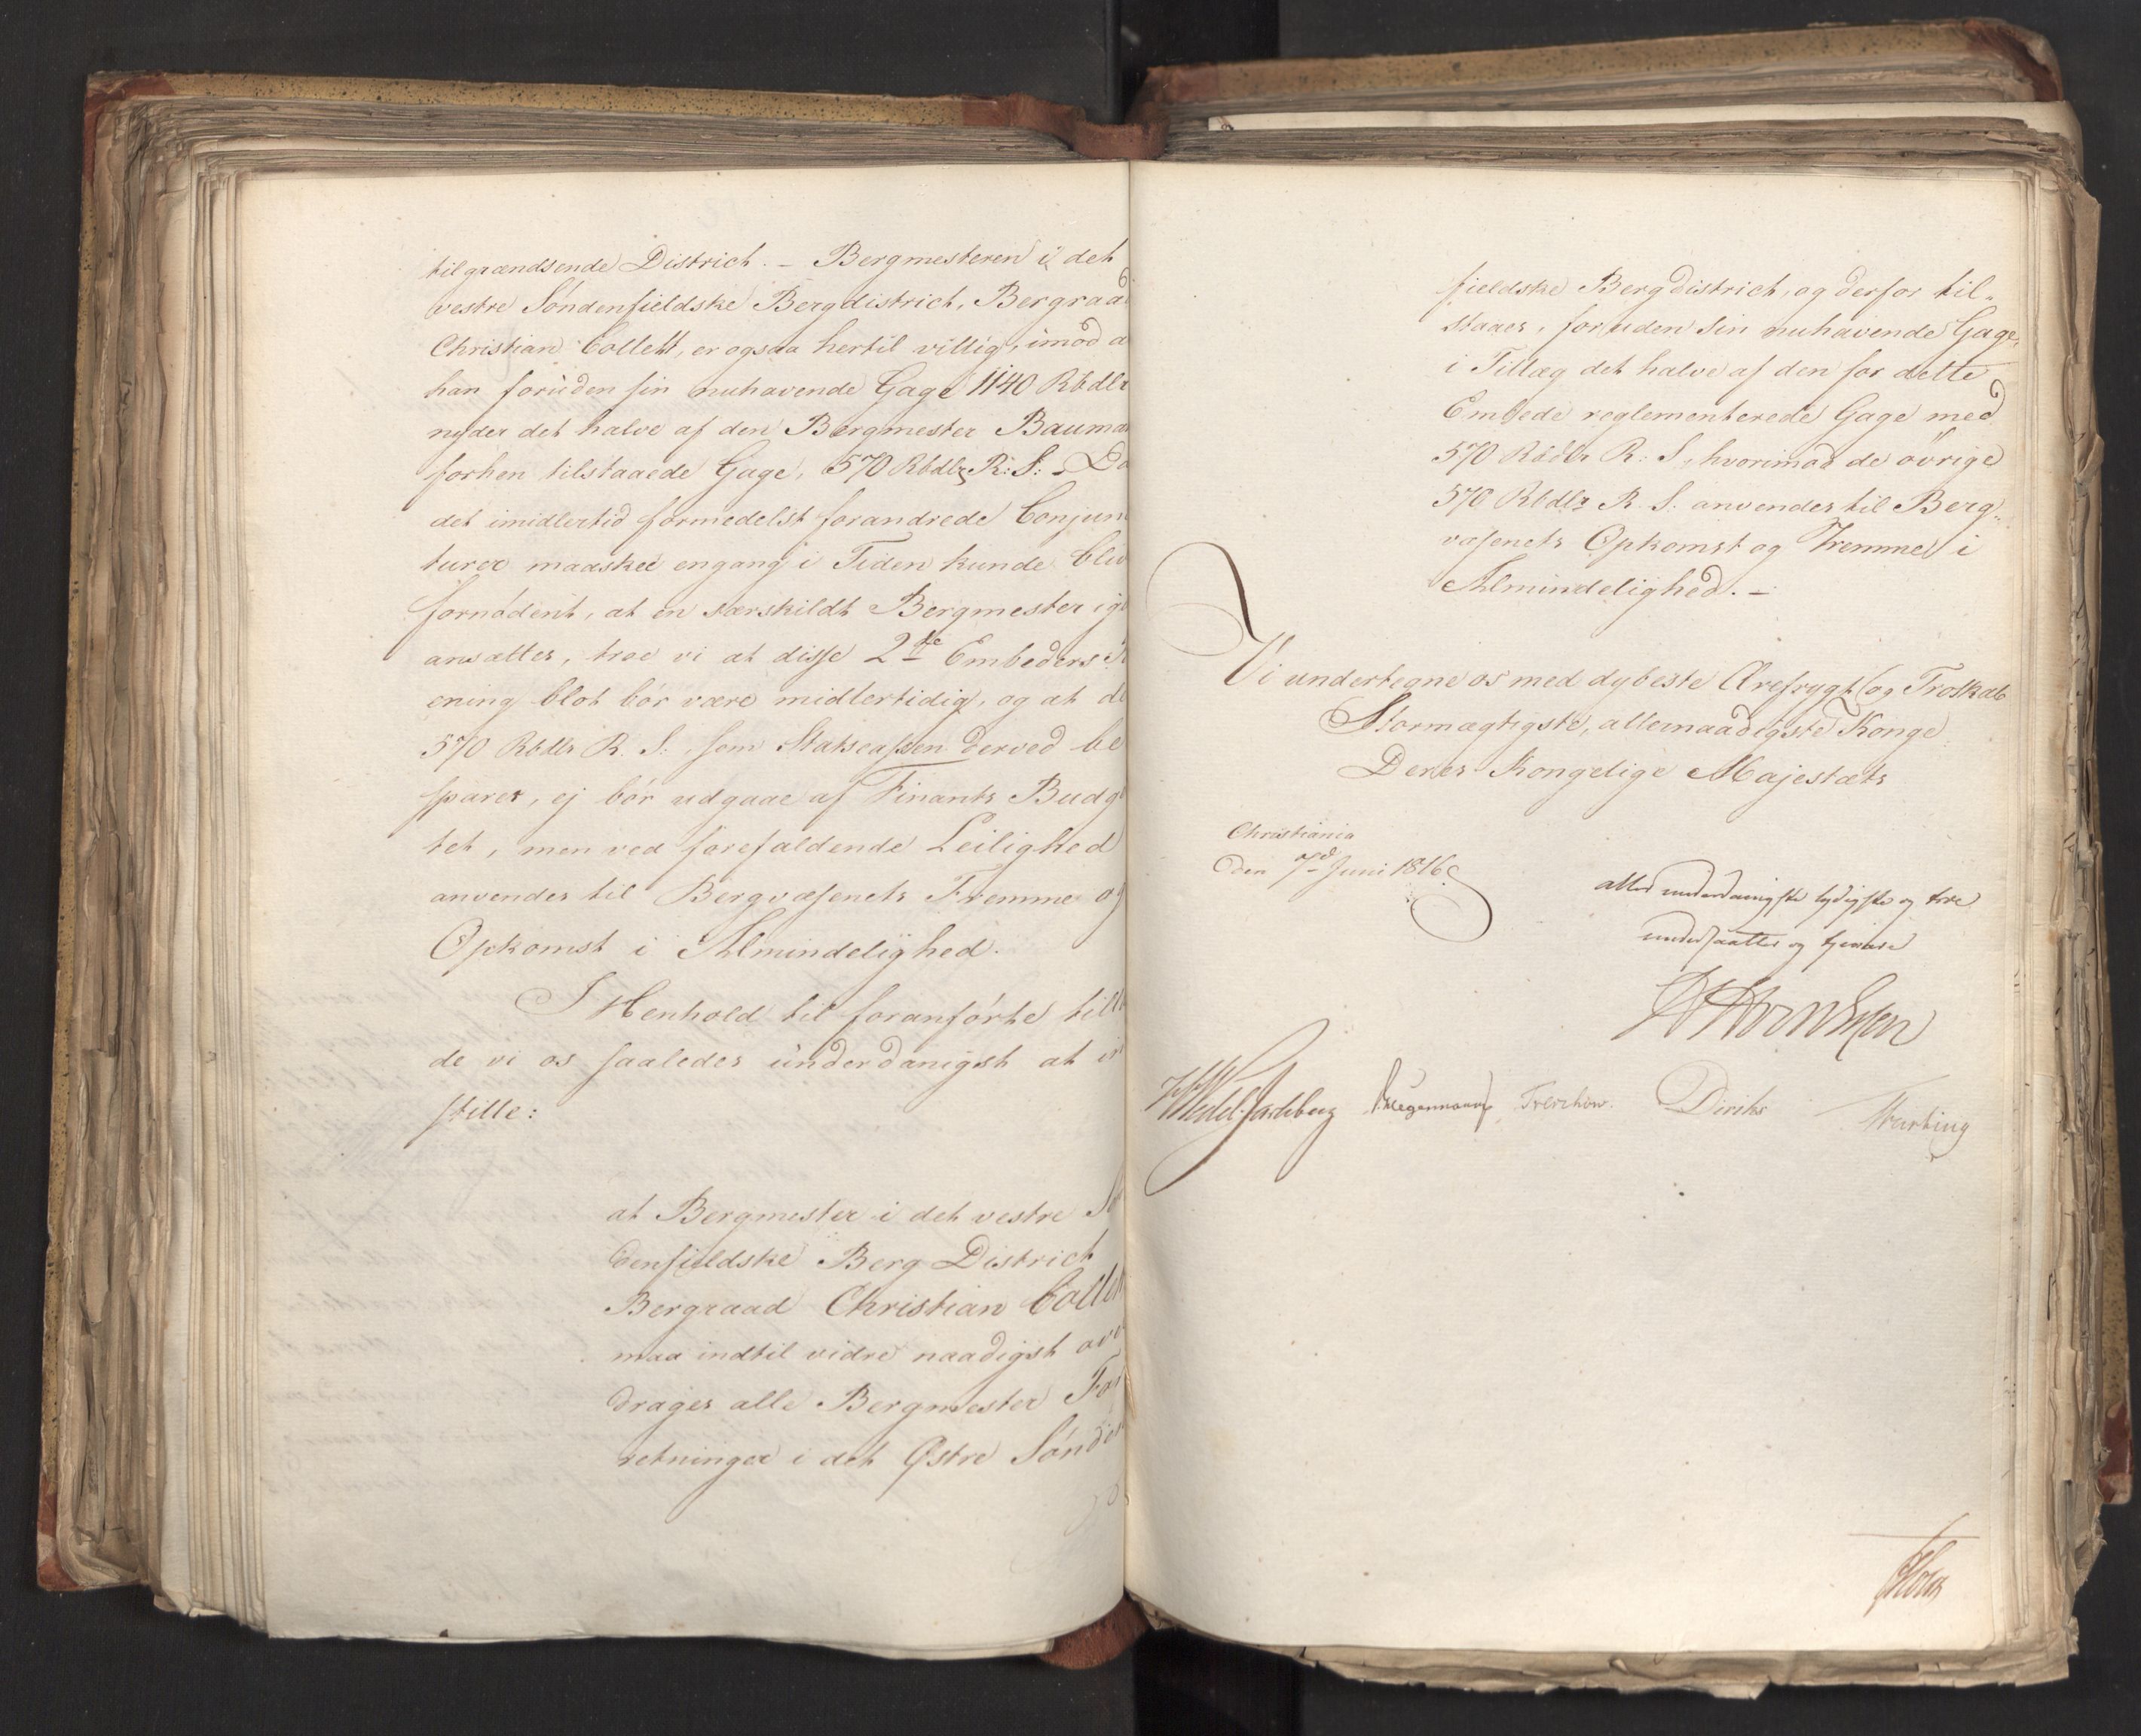 tilgrændsende District. – Bergmesteren i det
vestre Søndenfieldske Bergdistrict, Bergraad
Christian Collett, er ogsaa hertil villig, imod a
han foruden sin nuhavende Gage 1140 Rbdlr
nyder det halve af den Bergmester Bauman
forhen tilstaaede Gage, 570 Rbdlr R: S: – Da
det imidlertid formedelst forandrede Conjunc
turer maaskee engang i Tiden kunde bliv
fornødent, at en særskildt Bergmester ige
ansættes, troe vi at disse 2de Embeders
ening blot bør være midlertidig, og at de
570 Rbdlr R. S:, som Statscassen derved be
sparer, ej bør udgaae af Finants Budge
tet, men ved forefaldende Leilighed
anvendes til Bergvæsenets Fremme og
Opkomst i Almindelighed.
I Henhold til foranførte tilla
de vi os saaledes underdanigst at in
stille:
at Bergmester i det vestre Sø
denfieldske Berg District
Bergraad Christian Collett
maa indtil vidre naadigst ove
drages alle Bergmester For
retninger i det Østre Sønden
fieldske Bergdistrict, og derfor til-
staaes, foruden sin nuhavende Gage,
i Tillæg det halve af den for dette
Embede reglementerede Gage med
570 Rbdlr R: S, hvorimod de øvrige
570 Rbdlr R. S: anvendes til Berg-
væsenets Opkomst og Fremme i
Almindelighed. –
Vi undertegne os med dybeste Ærefrygt og Troskab
Stormægtigste, allernaadigste Konge
Deres Kongelige Majestæts
Christiania
den 7d Juni 1816
allerunderdanigste lydigste og troe
undersaatter og tjenere
Wedel-Jarlsberg Hegermann Treschow. Diriks
Holst